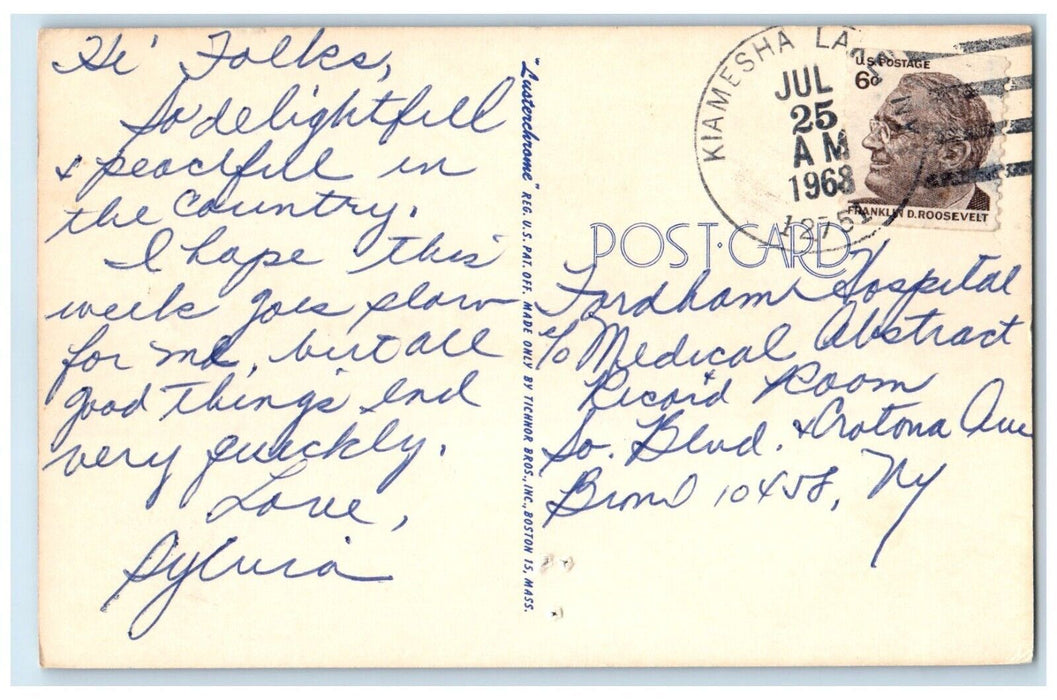 Hi' Folks,
So delightfull
& peacefull in
the country.
I hope this
week goes slow
for me, but all
good things end
very quickly.
Love,
Sylvia
"Lusterchrome" REG. U.S. PAT. OFF. MADE ONLY BY TICHNOR BROS., INC., BOSTON 15, MASS.
KIAMESHA LA
JUL
25
AM
1968
12751
U.S. POSTAGE
6¢
FRANKLIN D. ROOSEVELT
POST-CARD
Fordham Hospital
c/o Medical Abstract
& Record Room
So. Blvd. & Crotona Ave
Bronx 10458, NY